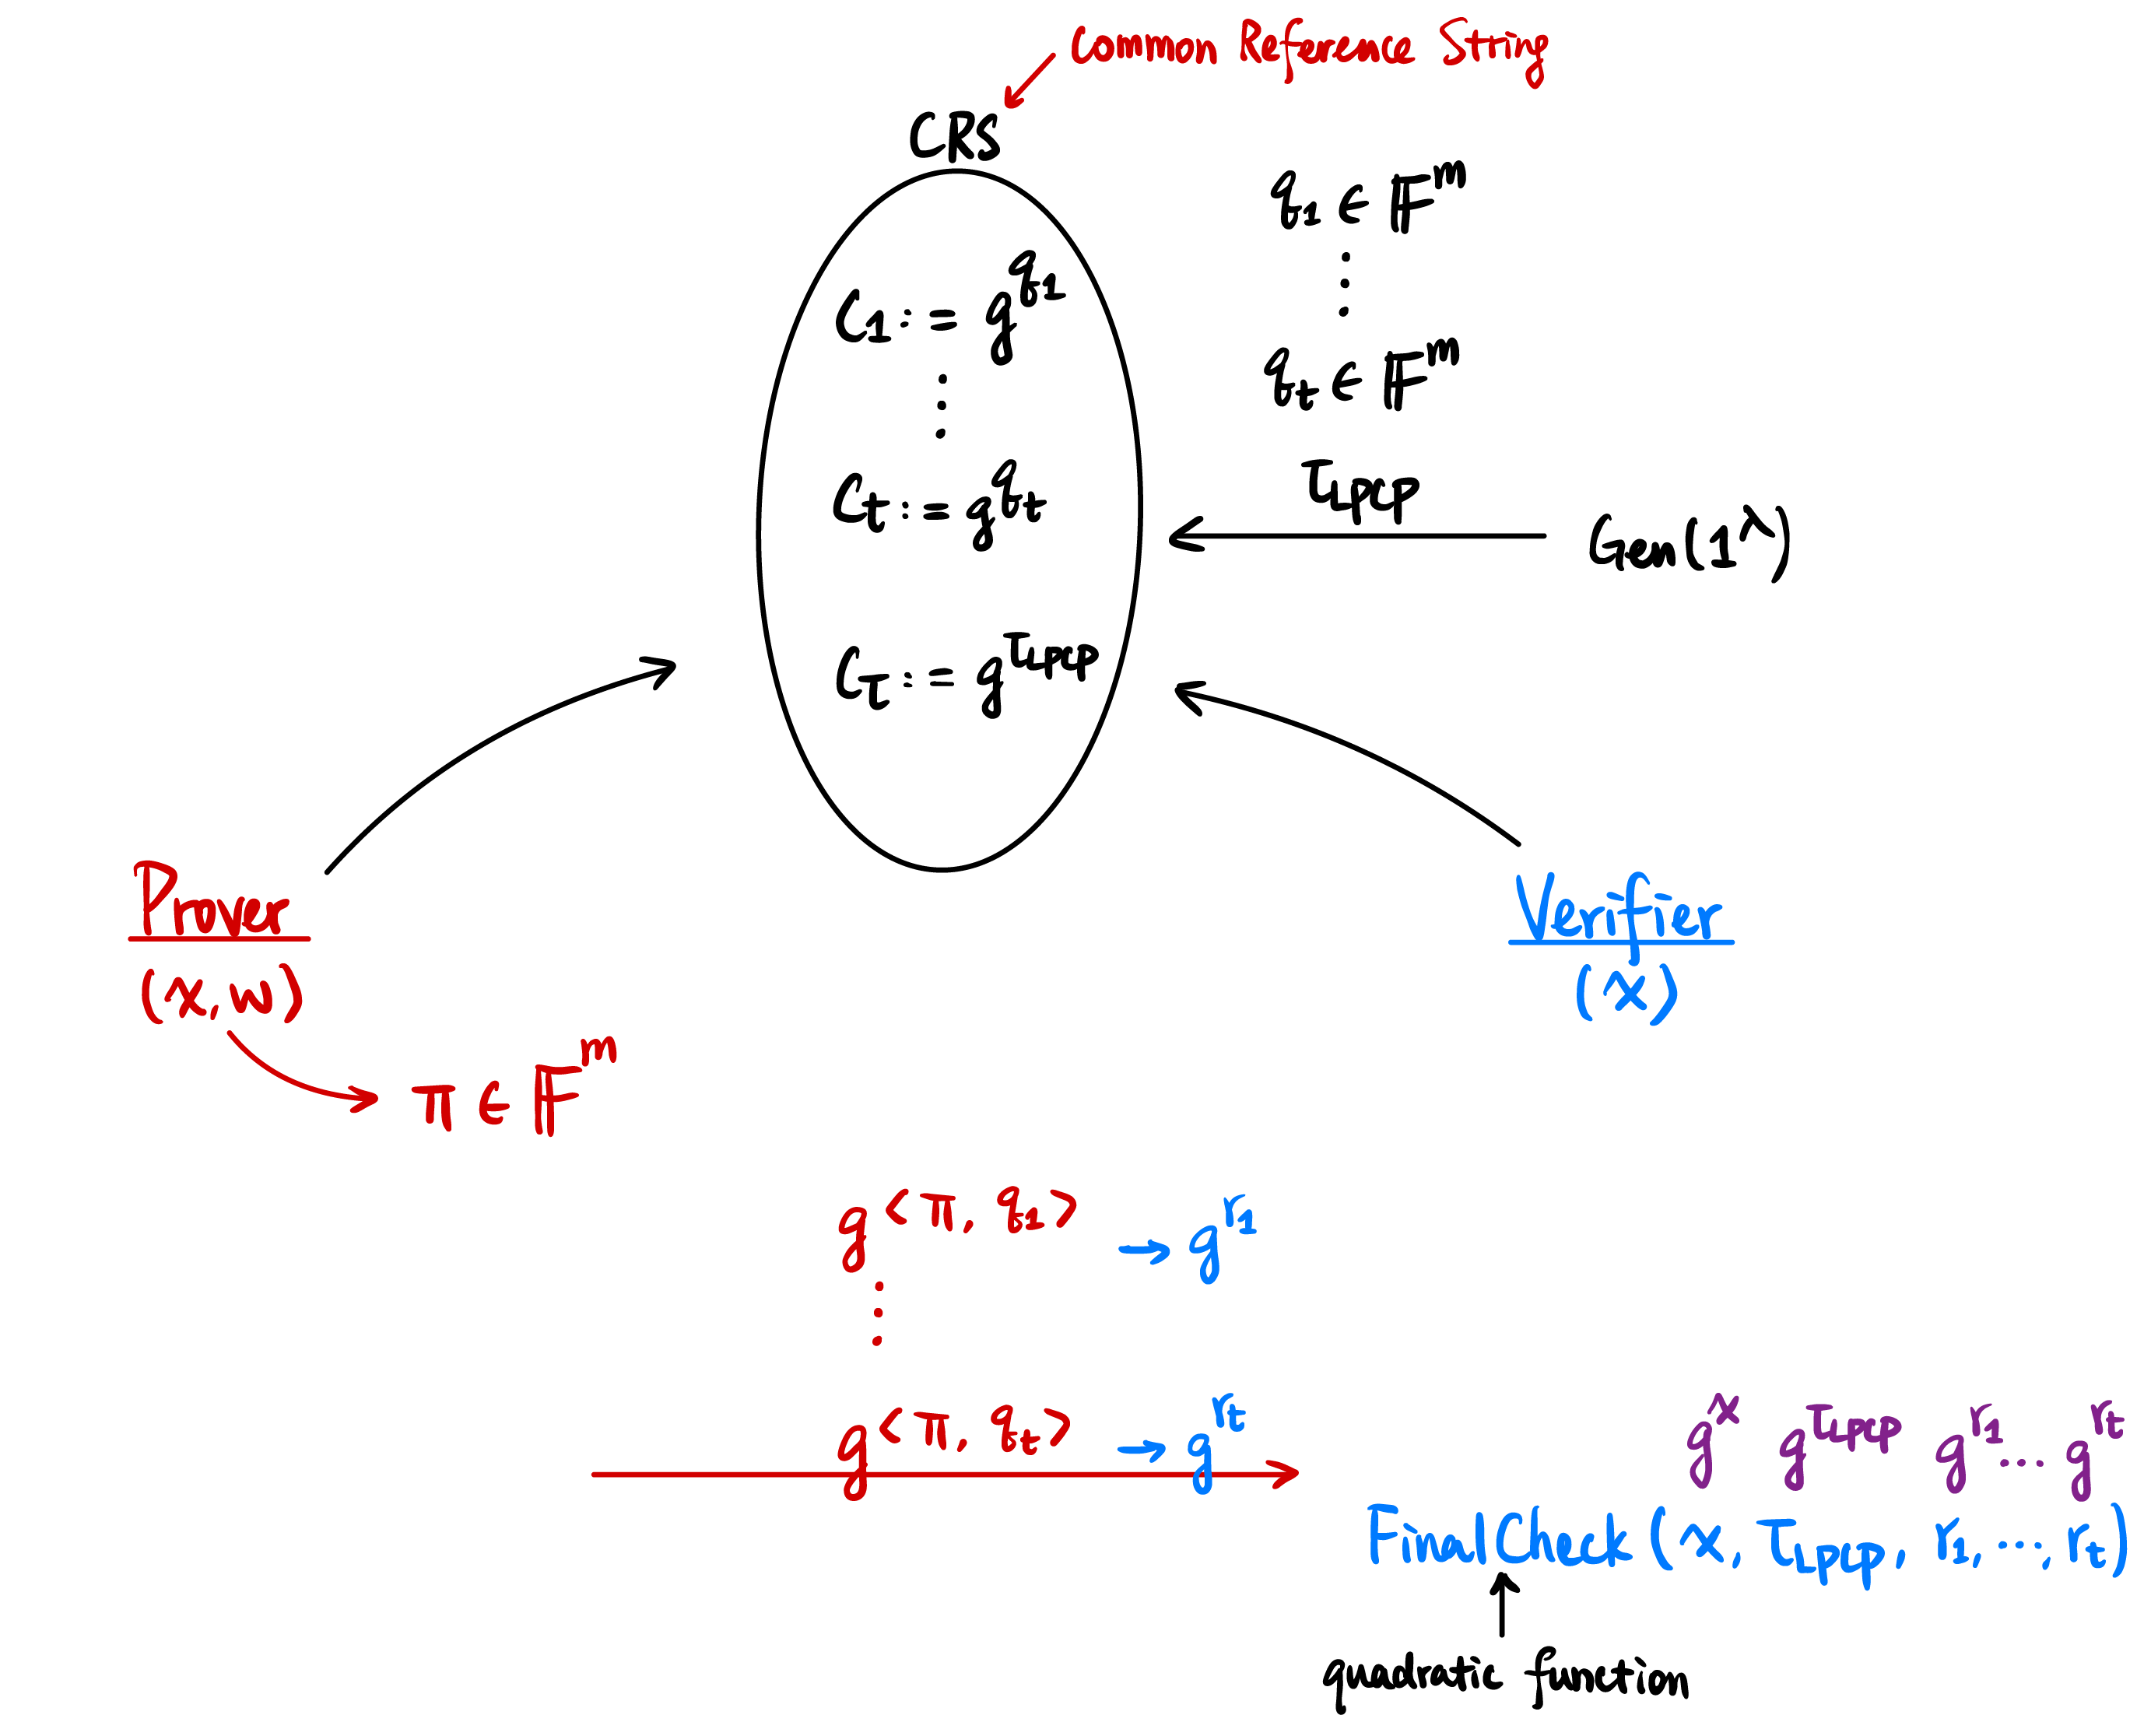 Common Reference String
CRS
q₁ ∈ 𝔽ᵐ
⋮
qₜ ∈ 𝔽ᵐ
C₁ := g^{q₁}
⋮
Cₜ := g^{qₜ}
C_τ := g^{τ_{LPCP}}
τ_{LPCP}
Gen(1^λ)
Prover
(x, w)
π ∈ 𝔽ᵐ
Verifier
(x)
g^{<π, q₁>} → g^{r₁}
⋮
g^{<π, qₜ>} → g^{rₜ}
g^x g^{τ_{LPCP}} g^{r₁} ... g^{rₜ}
FinalCheck (x, τ_{LPCP}, r₁, ..., rₜ)
quadratic function